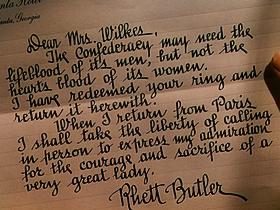 Atlanta, Georgia
Dear Mrs. Wilkes,
The Confederacy may need the
lifeblood of its men, but not the
hearts blood of its women.
I have redeemed your ring and
return it herewith.
When I return from Paris
I shall take the liberty of calling
in person to express my admiration
for the courage and sacrifice of a
very great lady.
Rhett Butler